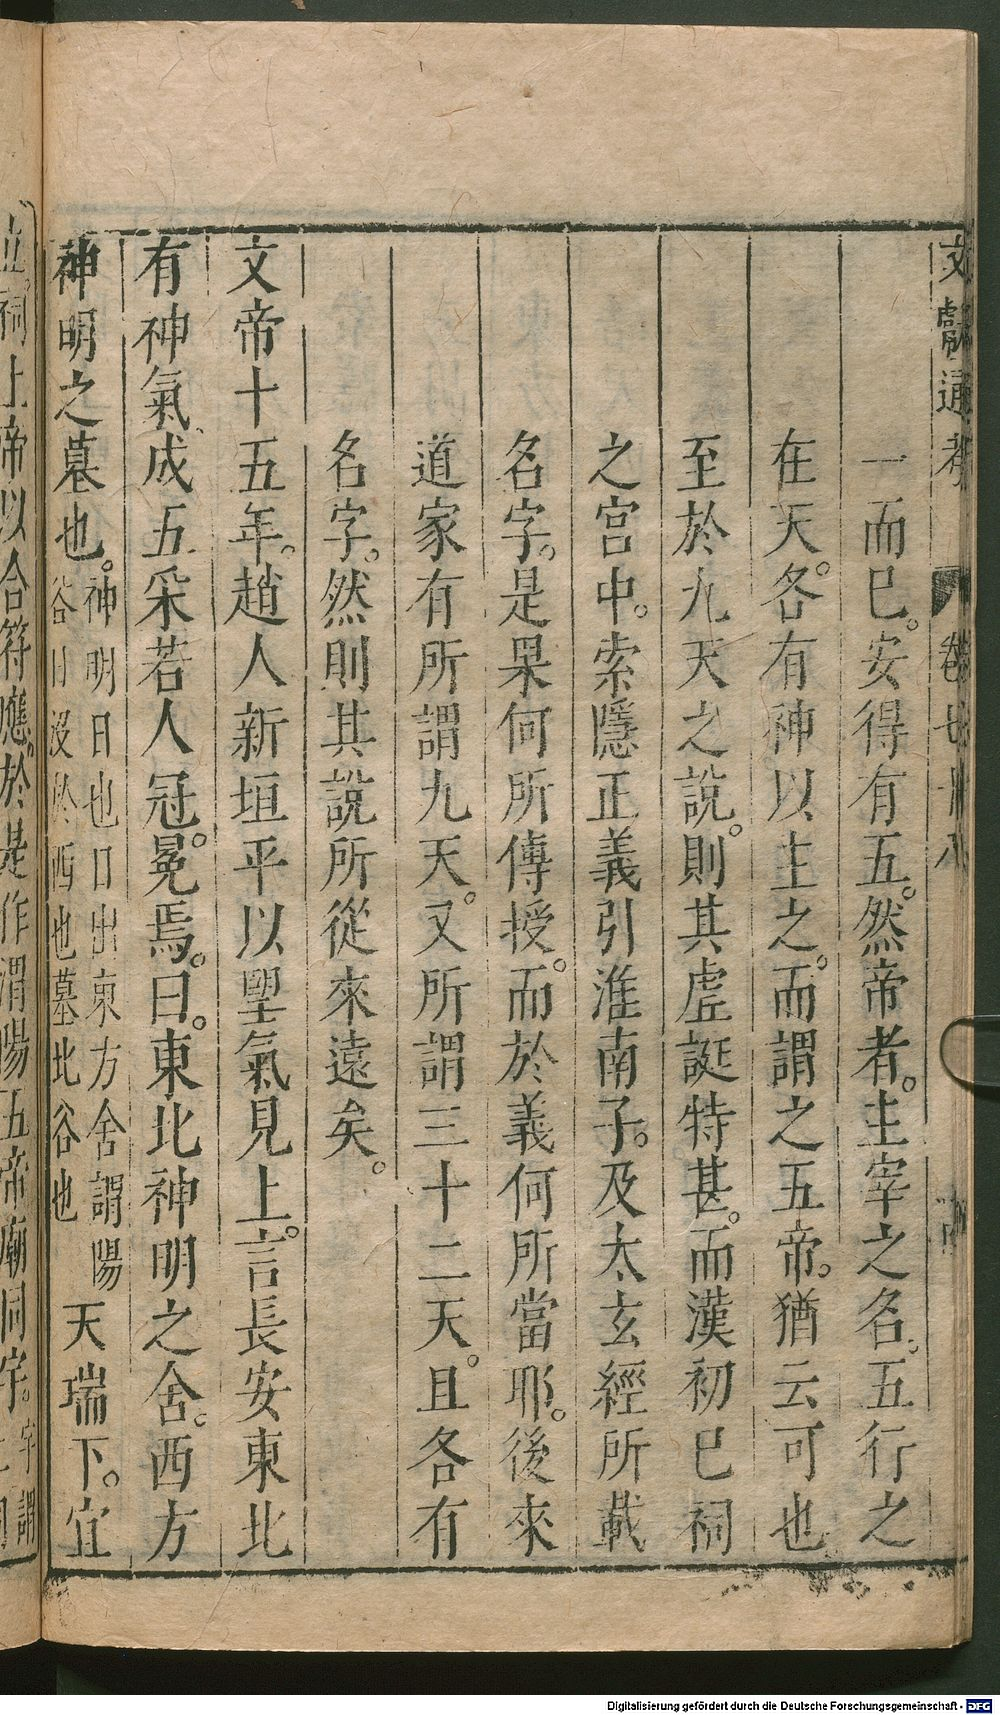 文獻通考　卷
一而已。安得有五。然帝者。主宰之名。五行之
在天。各有神以主之。而謂之五帝。猶云可也
至於九天之說。則其虛誕特甚。而漢初已祠
之宮中。索隱正義引淮南子。及太玄經所載
名字。是果何所傳授。而於義何所當耶。後來
道家有所謂九天。又所謂三十二天。且各有
名字。然則其說所從來遠矣。
文帝十五年。趙人新垣平以望氣見上。言長安東北
有神氣成五采若人冠冕焉。曰。東北神明之舍。西方
神明之墓也。神明日也日出東方舍謂陽谷日沒於西也墓北谷也天瑞下。宜
立。祠上帝以合符應。於是作渭陽五帝廟同宇。宇謂
Digitalisierung gefördert durch die Deutsche Forschungsgemeinschaft - DFG